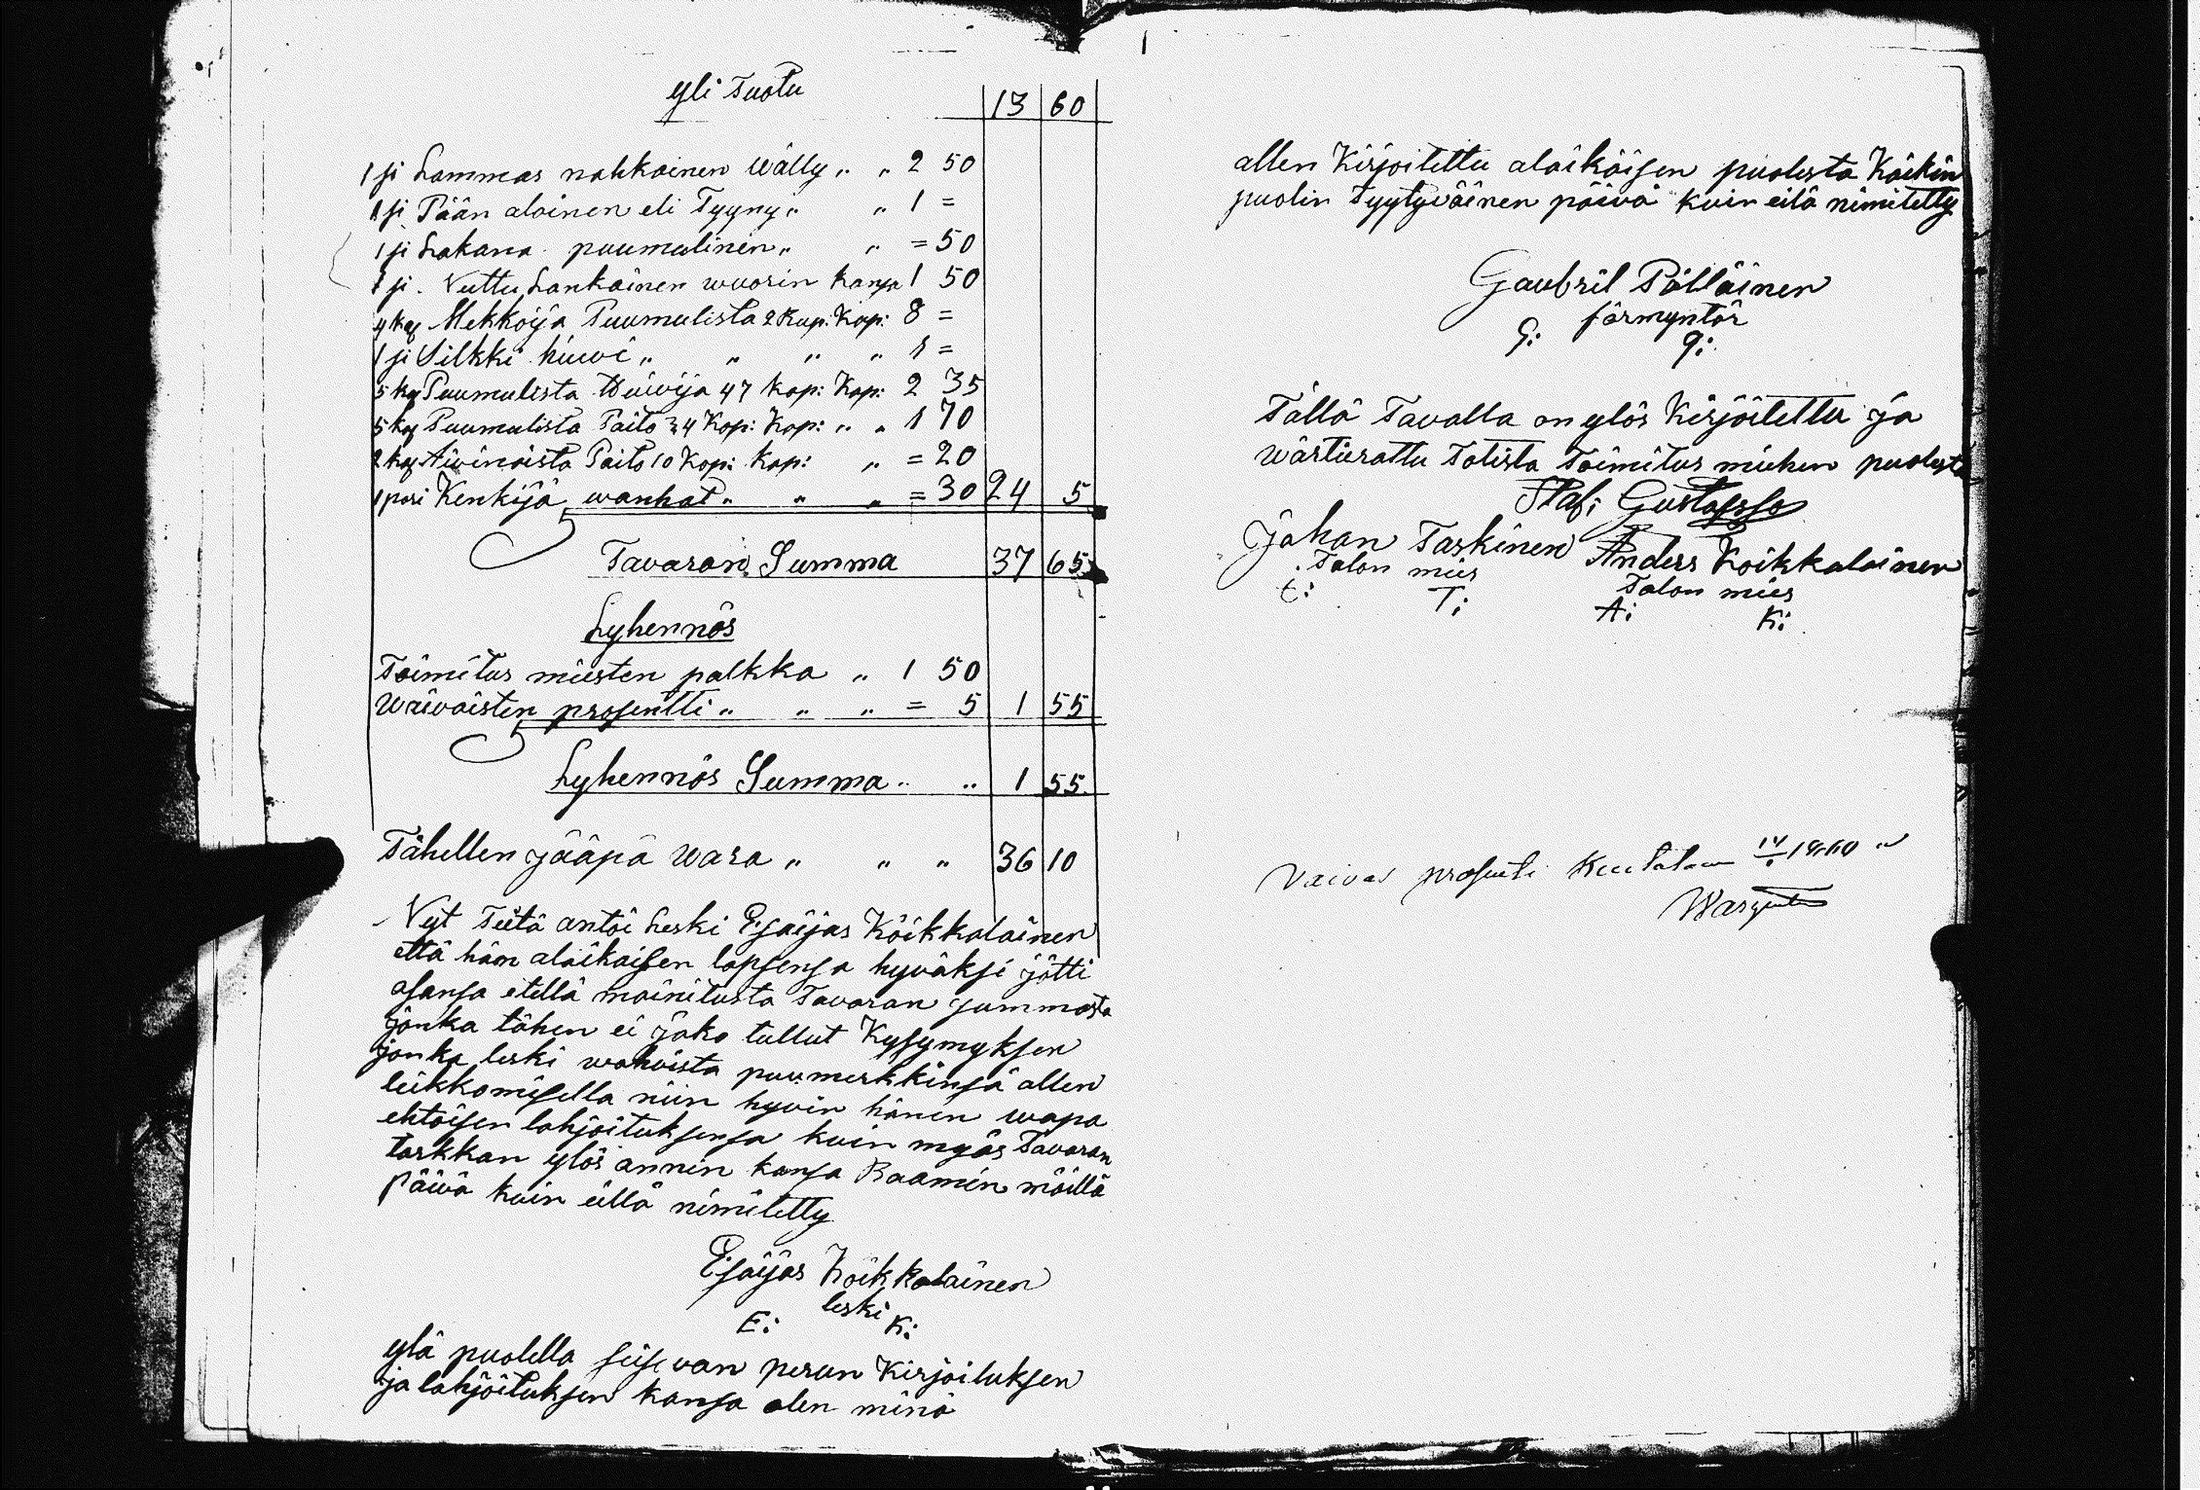 yli Tuotu 13 60
1 si Lammas nahkainen Wälly „ „ 2 50
1 si Pään alainen eli Tyyny „ „ 1 =
1 si Lakana puumulinen „ „ = 50
1 si Nuttu Lankainen wuorin kansa 1 50
4 kpl Mekkoija Puumulista 2 Rup: Kap: 8 =
1 si Silkki hiuvi „ „ „ „ 1 =
5 kpl Puumulista Huivija 47 kop: Kap: 2 35
5 kpl Puumulista Paito 34 Kop: Kap: „ „ 1 70
2 kpl Aivinaista Paito 10 Kop: Kap: „ = 20
1 pari Kenkijä wanhat „ „ „ = 30 24 5
Tavaran Summa 37 65
Lyhennös
Toimitus miesten palkka „ 1 50
Waivaisten prosentti „ „ „ = 5 1 55
Lyhennös Summa „ „ 1 55
Tähellen jääpä wara „ „ „ 36 10
Nyt Tietä antoi Leski Esaijas Koikkalainen
että hän alaikaisen lapsensa hyväksi jätti
osansa etellä mainitusta Tavaran summasta
jonka tähen ei jako tullut Kysymyksen
jonka leski wahvista puumerkkinsä allen
leikkomisella niin hyvin hänen wapa
ehtoisen lahjoituksensa kuin myös Tavaran
tarkkan ylös annin kansa Raamin mäillä
päivä kuin eillä nimitetty
Esaijas Koikkalainen
leski
E: K:
ylä puolella seisovan perun Kirjoituksen
ja lahjoituksen kansa olen minä
allen Kirjoitettu alaikäisen puolesta Kaikin
puolin Tyytyväinen päivä kuin eilä nimitetty
Gaubril Pölläinen
förmyntör
G: P:
Tällä Tavalla on ylös Kirjoitettu ja
wärtierattu Totista Toimitus miehen puolesta
Staf: Gustafsso
Johan Taskinen Anders Koikkalainen
Talon mies Talon mies
T: A: K:
Vaivas prosenti